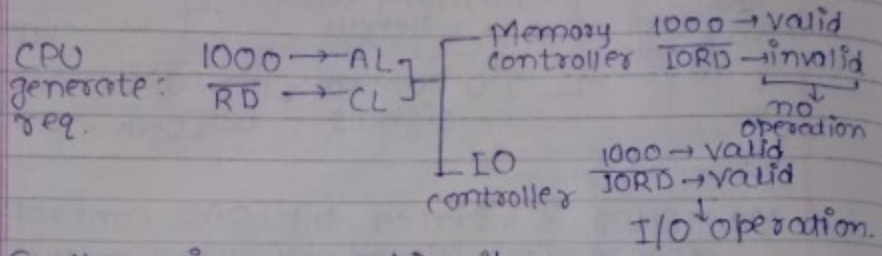 CPU generate: req.
1000 → AL
R̅D̅ → CL
Memory controller
1000 → valid
I̅O̅R̅D̅ → invalid
no operation
IO controller
1000 → valid
I̅O̅R̅D̅ → valid
I/O operation.